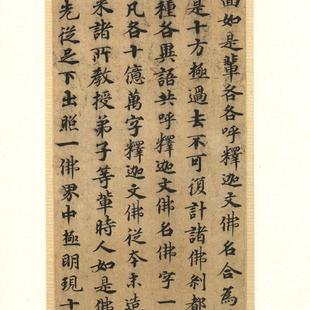 面如是輩各各呼釋迦文佛名合為
是十方極過去不可復計諸佛剎都
種各異語共呼釋迦文佛名佛字一
凡各十億萬字釋迦文佛從本未造
来諸所教授弟子等輩時人如是佛
先從足下出照一佛界中極明現十